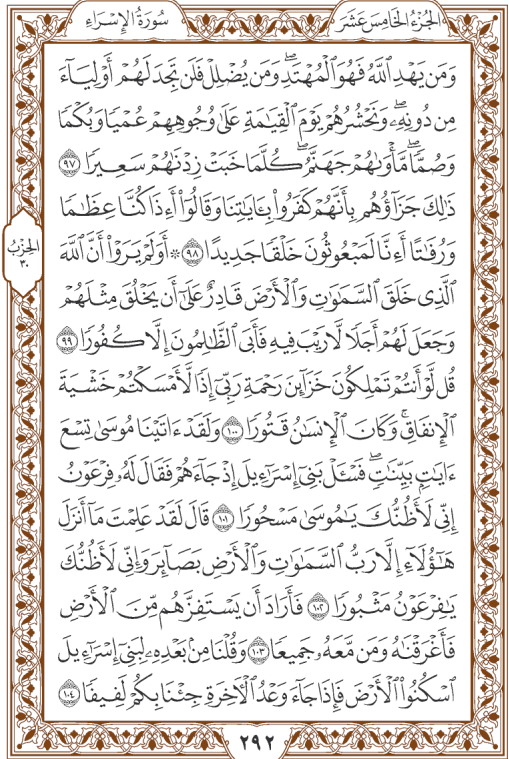 الجُزْءُ الخَامِسَ عَشَرَ
سُورَةُ الإِسْرَاءِ
وَمَن يَهْدِ ٱللَّهُ فَهُوَ ٱلْمُهْتَدِ ۖ وَمَن يُضْلِلْ فَلَن تَجِدَ لَهُمْ أَوْلِيَآءَ
مِن دُونِهِۦ ۖ وَنَحْشُرُهُمْ يَوْمَ ٱلْقِيَٰمَةِ عَلَىٰ وُجُوهِهِمْ عُمْيًا وَبُكْمًا
وَصُمًّا ۖ مَّأْوَىٰهُمْ جَهَنَّمُ ۖ كُلَّمَا خَبَتْ زِدْنَٰهُمْ سَعِيرًا ٩٧
ذَٰلِكَ جَزَآؤُهُم بِأَنَّهُمْ كَفَرُوا۟ بِـَٔايَٰتِنَا وَقَالُوٓا۟ أَءِذَا كُنَّا عِظَٰمًا
وَرُفَٰتًا أَءِنَّا لَمَبْعُوثُونَ خَلْقًا جَدِيدًا ٩٨ ۞ أَوَلَمْ يَرَوْا۟ أَنَّ ٱللَّهَ
ٱلَّذِى خَلَقَ ٱلسَّمَٰوَٰتِ وَٱلْأَرْضَ قَادِرٌ عَلَىٰٓ أَن يَخْلُقَ مِثْلَهُمْ
وَجَعَلَ لَهُمْ أَجَلًا لَّا رَيْبَ فِيهِ فَأَبَى ٱلظَّٰلِمُونَ إِلَّا كُفُورًا ٩٩
قُل لَّوْ أَنتُمْ تَمْلِكُونَ خَزَآئِنَ رَحْمَةِ رَبِّىٓ إِذًا لَّأَمْسَكْتُمْ خَشْيَةَ
ٱلْإِنفَاقِ ۚ وَكَانَ ٱلْإِنسَٰنُ قَتُورًا ١٠٠ وَلَقَدْ ءَاتَيْنَا مُوسَىٰ تِسْعَ
ءَايَٰتٍۭ بَيِّنَٰتٍ ۖ فَسْـَٔلْ بَنِىٓ إِسْرَٰٓءِيلَ إِذْ جَآءَهُمْ فَقَالَ لَهُۥ فِرْعَوْنُ
إِنِّى لَأَظُنُّكَ يَٰمُوسَىٰ مَسْحُورًا ١٠١ قَالَ لَقَدْ عَلِمْتَ مَآ أَنزَلَ
هَٰٓؤُلَآءِ إِلَّا رَبُّ ٱلسَّمَٰوَٰتِ وَٱلْأَرْضِ بَصَآئِرَ وَإِنِّى لَأَظُنُّكَ
يَٰفِرْعَوْنُ مَثْبُورًا ١٠٢ فَأَرَادَ أَن يَسْتَفِزَّهُم مِّنَ ٱلْأَرْضِ
فَأَغْرَقْنَٰهُ وَمَن مَّعَهُۥ جَمِيعًا ١٠٣ وَقُلْنَا مِنۢ بَعْدِهِۦ لِبَنِىٓ إِسْرَٰٓءِيلَ
ٱسْكُنُوا۟ ٱلْأَرْضَ فَإِذَا جَآءَ وَعْدُ ٱلْءَاخِرَةِ جِئْنَا بِكُمْ لَفِيفًا ١٠٤
الحِزْبُ
٣٠
٢٩٢